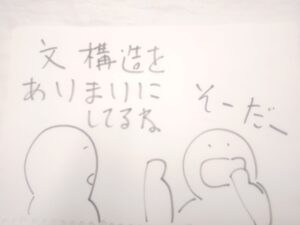 文 構造を
ありまいに
してるね
そーだー